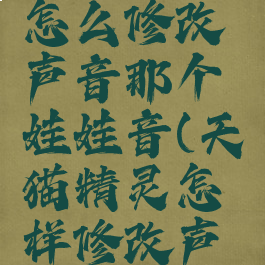 怎么修改
声音那个
娃娃音(天
猫精灵怎
样修改声